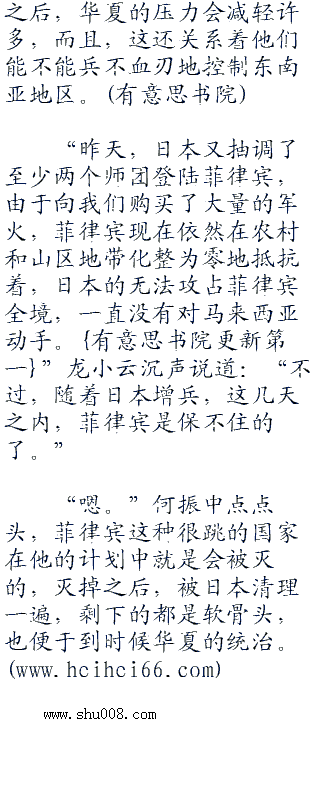 之后，华夏的压力会减轻许
多，而且，这还关系着他们
能不能兵不血刃地控制东南
亚地区。(有意思书院)
“昨天，日本又抽调了
至少两个师团登陆菲律宾，
由于向我们购买了大量的军
火，菲律宾现在依然在农村
和山区地带化整为零地抵抗
着，日本的无法攻占菲律宾
全境，一直没有对马来西亚
动手。{有意思书院更新第
一}”龙小云沉声说道：“不
过，随着日本增兵，这几天
之内，菲律宾是保不住的
了。”
“嗯。”何振中点点
头，菲律宾这种很跳的国家
在他的计划中就是会被灭
的，灭掉之后，被日本清理
一遍，剩下的都是软骨头，
也便于到时候华夏的统治。
(www.hcihci66.com)
www.shu008.com